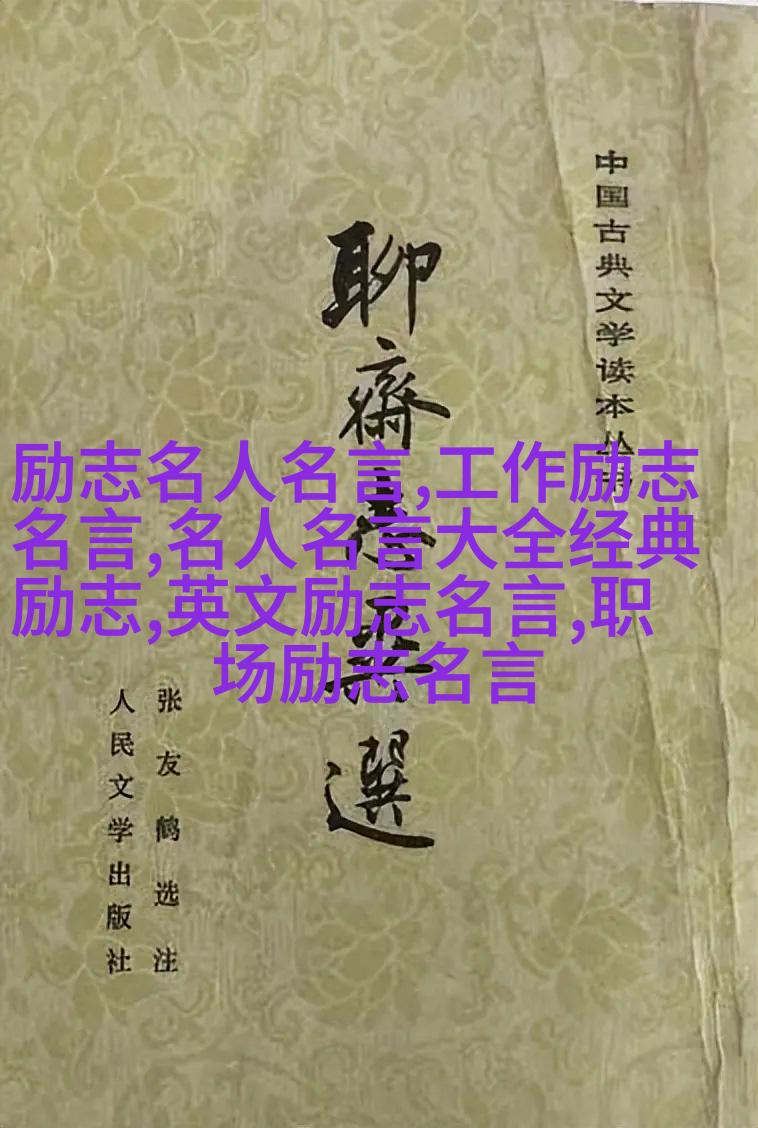 中国古典文学读本丛书
聊齋志異選
张友鹤选注
人民文学出版社
励志名人名言,工作励志
名言,名人名言大全经典
励志,英文励志名言,职
场励志名言